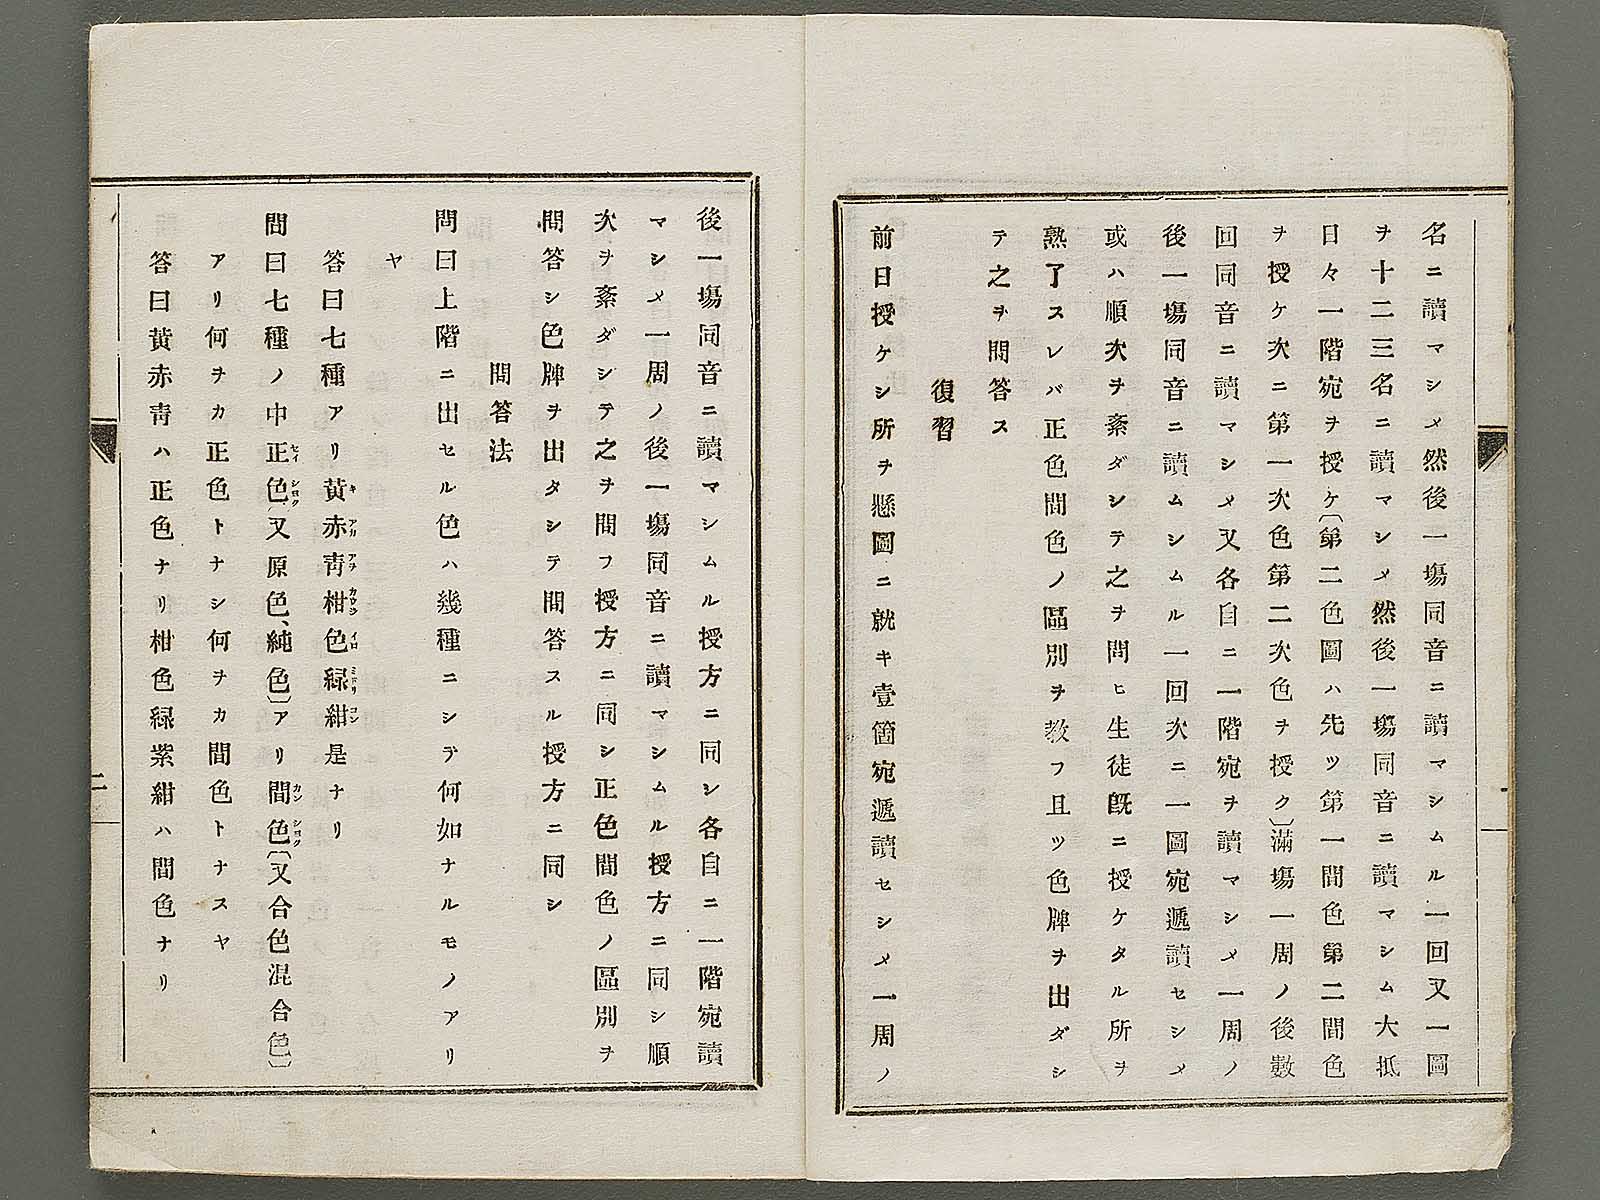 名ニ讀マシメ然後一塲同音ニ讀マシムル一回又一圖
ヲ十二三名ニ讀マシメ然後一塲同音ニ讀マシム大抵
日々一階宛ヲ授ケ〔第二色圖ハ先ツ第一間色第二間色
ヲ授ケ次ニ第一次色第二次色ヲ授ク〕滿塲一周ノ後數
回同音ニ讀マシメ又各自ニ一階宛ヲ讀マシメ一周ノ
後一塲同音ニ讀ムシムル一回次ニ一圖宛遞讀セシメ
或ハ順次ヲ紊ダシテ之ヲ問ヒ生徒既ニ授ケタル所ヲ
熟了スレバ正色間色ノ區別ヲ教フ且ツ色牌ヲ出ダシ
テ之ヲ問答ス
復習
前日授ケシ所ヲ懸圖ニ就キ壹箇宛遞讀セシメ一周ノ
後一塲同音ニ讀マシムル授方ニ同シ各自ニ一階宛讀
マシメ一周ノ後一塲同音ニ讀マシムル授方ニ同シ順
次ヲ紊ダシテ之ヲ問フ授方ニ同シ正色間色ノ區別ヲ
問答シ色牌ヲ出タシテ問答スル授方ニ同シ
問答法
問曰上階ニ出セル色ハ幾種ニシテ何如ナルモノアリ
ヤ
答曰七種アリ黄赤靑柑色緑紺是ナリ
問曰七種ノ中正色〔又原色、純色〕アリ間色〔又合色混合色〕
アリ何ヲカ正色トナシ何ヲカ間色トナスヤ
答曰黄赤靑ハ正色ナリ柑色緑紫紺ハ間色ナリ
二